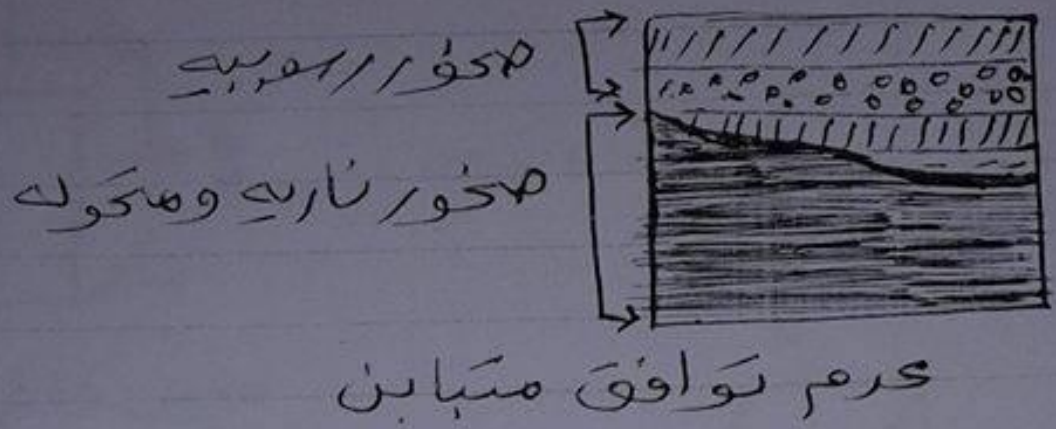 صخور رسوبيه
صخور ناريه ومتحوله
عدم توافق متباين